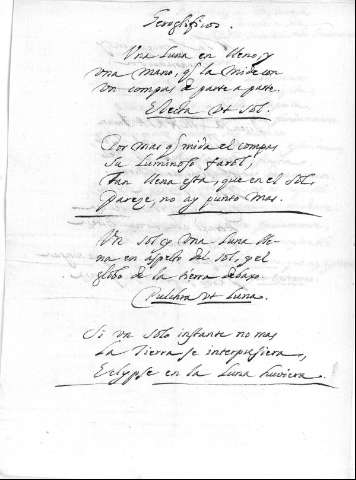 Geroglificos.
Una Luna en lleno, y
una mano, q̃ la mide con
un compas de parte a parte.
Electa vt sol.
Por mas q̃ mida el compas
su luminoso farol,
tan llena esta, que en el sol,
pareze, no ay punto mas.
Un sol, y una Luna lle-
na en aspecto del sol, y el
globo de la tierra debaxo.
Pulchra vt Luna.
Si un solo instante no mas
la Tierra se interpusiera,
Eclypse en la Luna huviera.